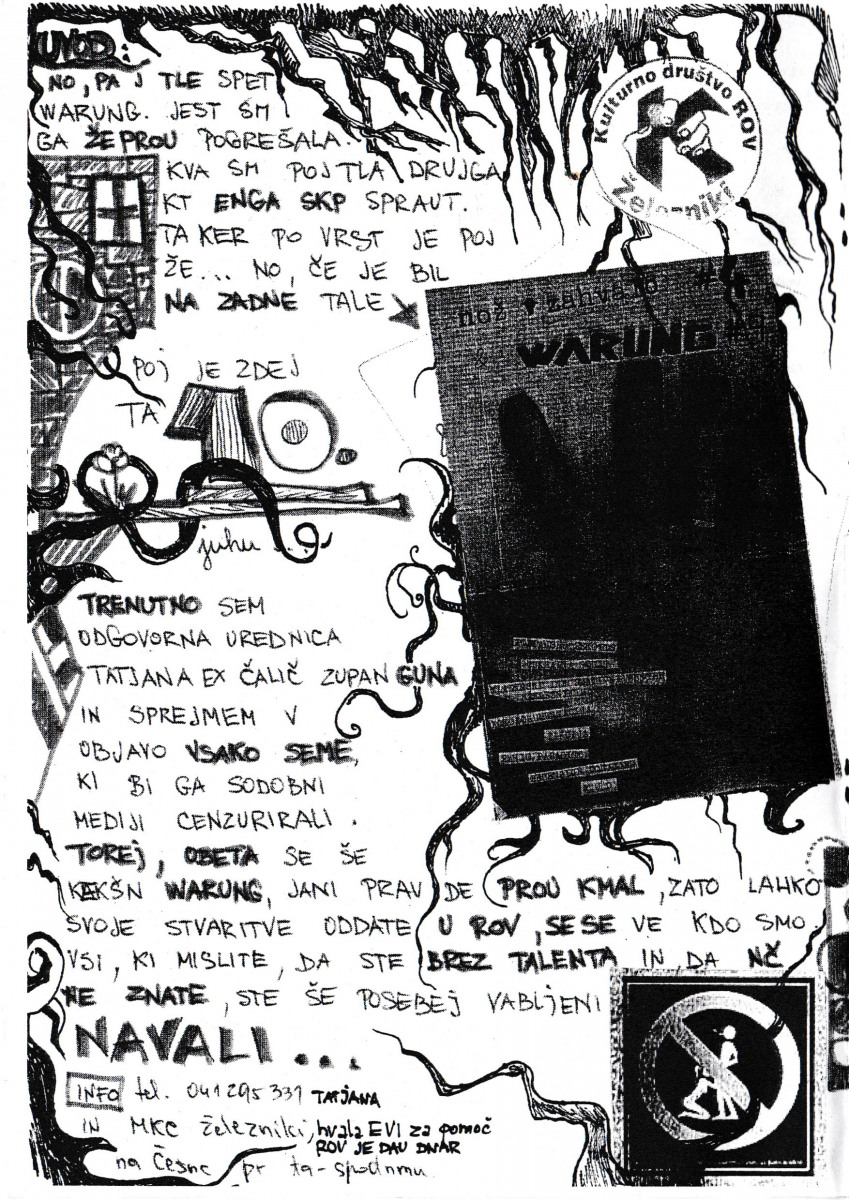 UVOD:
NO, PA J TLE SPET
WARUNG. JEST SM
GA ŽEPROU POGREŠALA.
KVA SM POJTLA DRUJGA
KT ENGA SKP SPRAUT.
TA KER PO VRST JE POJ
ŽE... NO, ČE JE BIL
NA ZADNE TALE
Kulturno društvo ROV
Železniki
nož zahvalo #4
WARUNG
POJ JE ZDEJ
TA 10.
juhu...
TRENUTNO SEM
ODGOVORNA UREDNICA
TATJANA EX ČALIČ ZUPAN GUNA
IN SPREJMEM V
OBJAVO VSAKO SEME,
KI BI GA SODOBNI
MEDIJI CENZURIRALI.
TOREJ, OBETA SE ŠE
KAKŠN WARUNG, JANI PRAV DE PROU KMAL, ZATO LAHKO
SVOJE STVARITVE ODDATE U ROV, SESE VE KDO SMO
VSI, KI MISLITE, DA STE BREZ TALENTA IN DA NČ
NE ZNATE, STE ŠE POSEBEJ VABLJENI
NAVALI...
INFO tel. 041295331 TATJANA
IN MKC železniki, hvala EVI za pomoč
ROV JE DAU DNAR
na Česnc pr ta-spodnmu